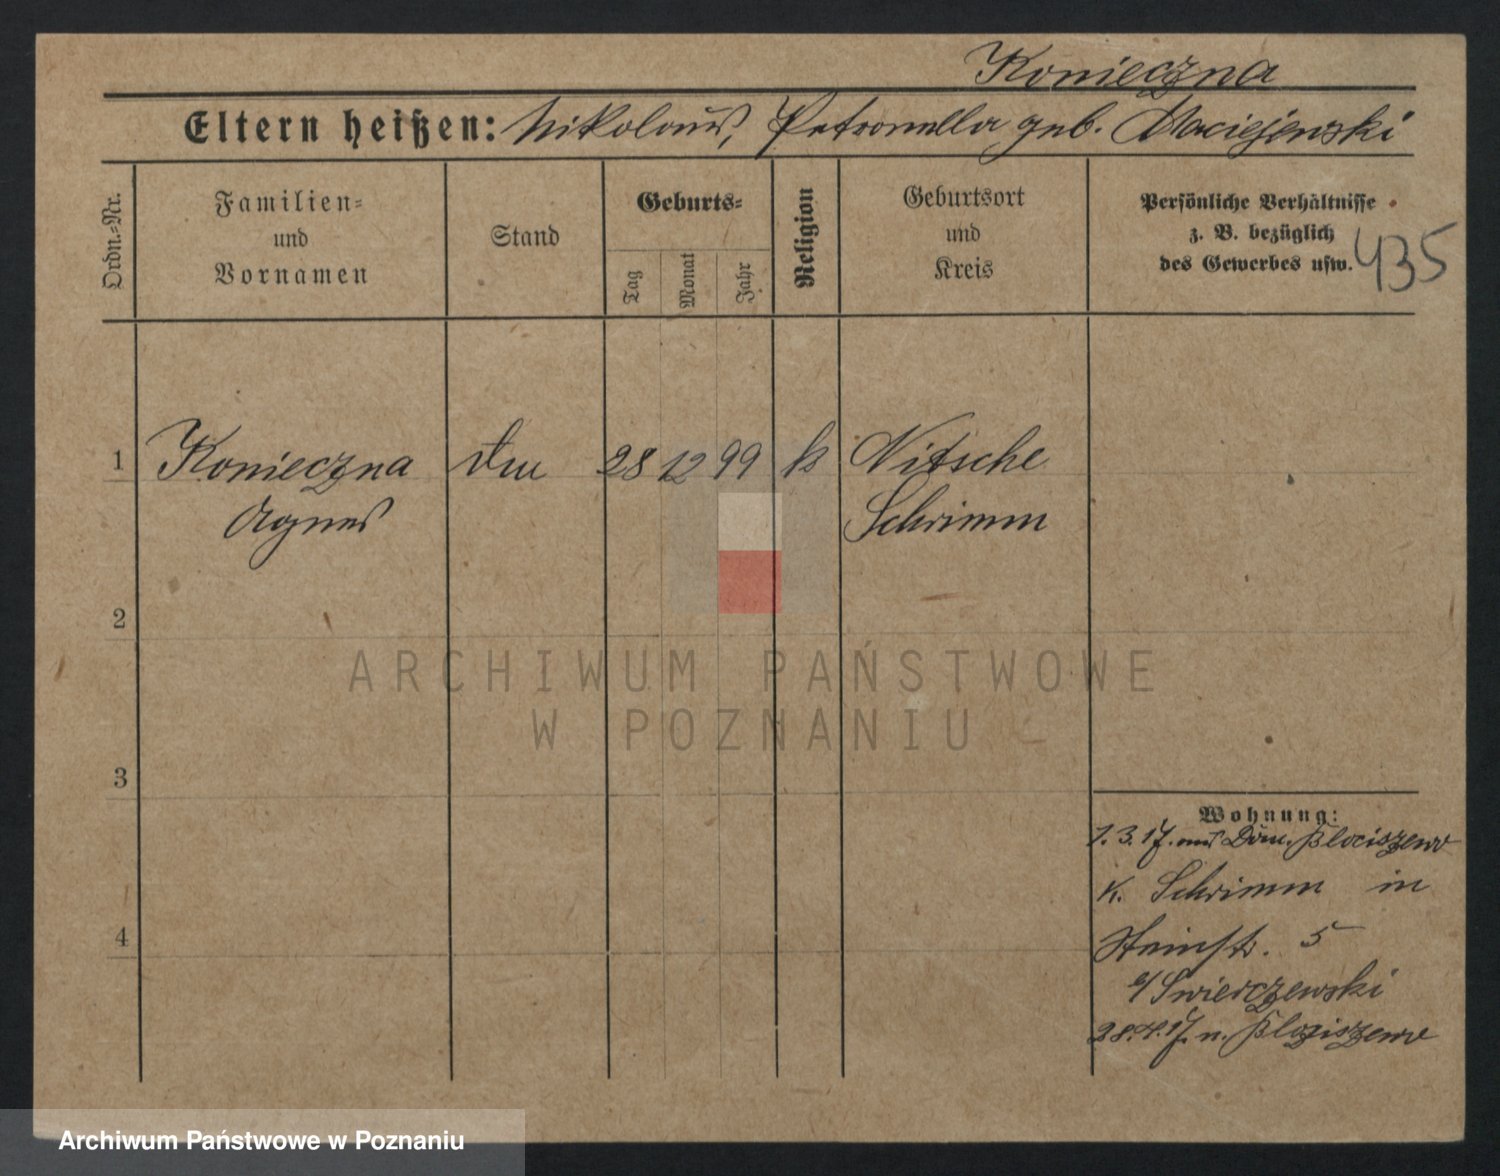 Konieczna
Eltern heißen: Nikolaus, Petronella geb. Maciejewski
Ordn.-Nr.
Familien-
und
Vornamen
Stand
Geburts-
Tag
Monat
Jahr
Religion
Geburtsort
und
Kreis
Persönliche Verhältnisse
z. B. bezüglich
des Gewerbes usw.
435
1 Konieczna 28 12 99 k Nitsche
Agnes Schrimm
2
3
4
ARCHIWUM PAŃSTWOWE
W POZNANIU
Wohnung:
1.3.17. aus Dom. Blociszewo
K. Schrimm in
Steinstr. 5
b/ Swierczewski
28.4.17. n. Blociszewo
Archiwum Państwowe w Poznaniu